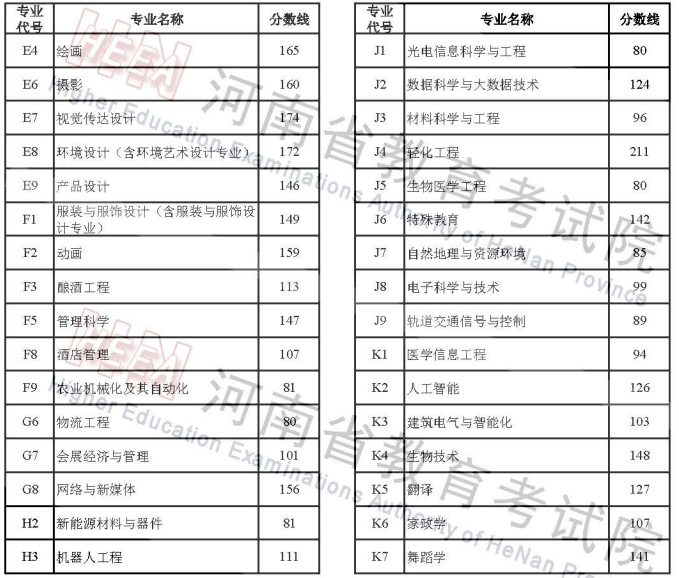 专业代号 专业名称 分数线
E4 绘画 165
E6 摄影 160
E7 视觉传达设计 174
E8 环境设计（含环境艺术设计专业） 172
E9 产品设计 146
F1 服装与服饰设计（含服装与服饰设
计专业） 149
F2 动画 159
F3 酿酒工程 113
F5 管理科学 147
F8 酒店管理 107
F9 农业机械化及其自动化 81
G6 物流工程 80
G7 会展经济与管理 101
G8 网络与新媒体 156
H2 新能源材料与器件 81
H3 机器人工程 111
专业代号 专业名称 分数线
J1 光电信息科学与工程 80
J2 数据科学与大数据技术 124
J3 材料科学与工程 96
J4 轻化工程 211
J5 生物医学工程 80
J6 特殊教育 142
J7 自然地理与资源环境 85
J8 电子科学与技术 99
J9 轨道交通信号与控制 89
K1 医学信息工程 94
K2 人工智能 126
K3 建筑电气与智能化 103
K4 生物技术 148
K5 翻译 127
K6 家政学 107
K7 舞蹈学 141
HEEA 河南省教育考试院
Higher Education Examinations Authority of HeNan Province
HEEA 河南省教育考试院
Higher Education Examinations Authority of HeNan Province